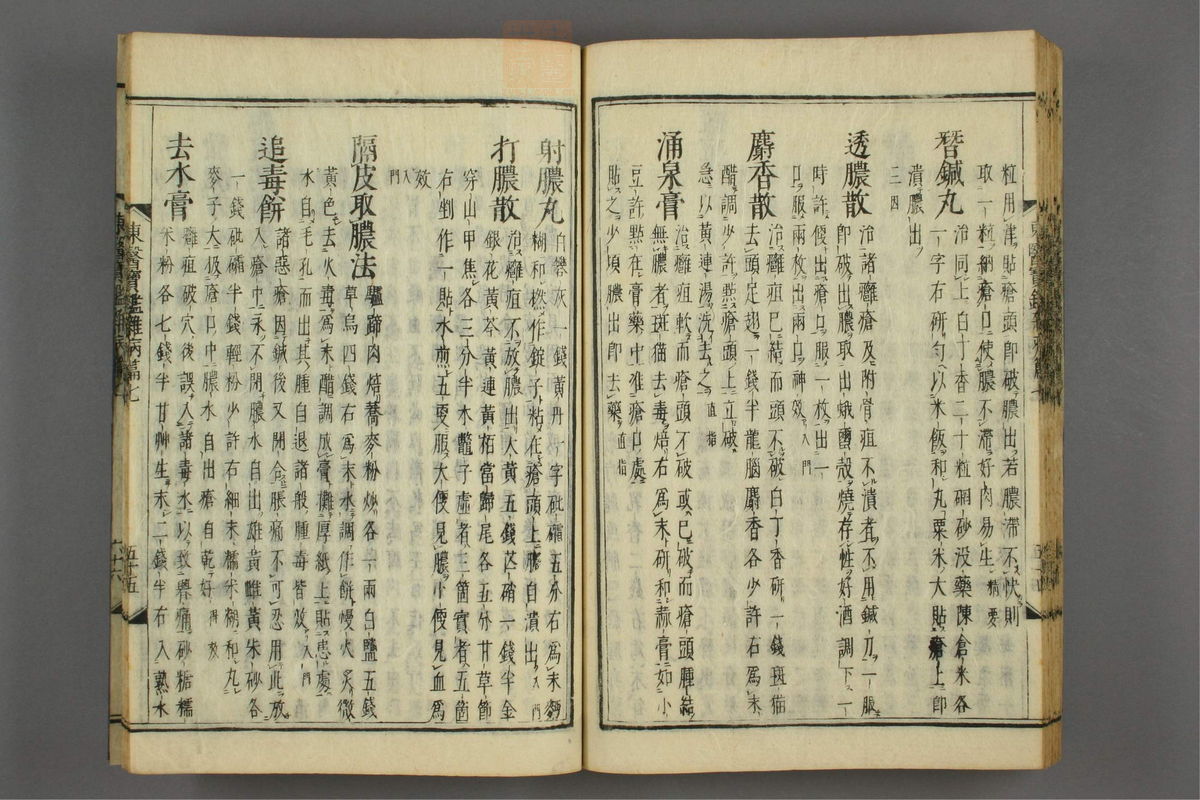 粒用津貼瘡頭卽破膿出若膿滯不快則
取一粒納瘡口使膿不滯好肉易生精要
替鍼丸
治同上白丁香二十粒硇砂没藥陳倉米各
一字右硏勻以米飯和丸粟米大貼瘡上卽
潰膿出
三四
透膿散
治諸癰瘡及附骨疽不潰者不用鍼刀一服
卽破出膿取出蛾蠒殼燒存性好酒調下一
時許便出瘡口服一枚出一
口服兩枚出兩口神效入門
麝香散
治癰疽已結而頭不破白丁香硏一錢斑猫
去頭足翅一錢半龍腦麝香各少許右爲末
醋調少許㸃瘡頭上立破
急以黃連湯洗去之直指
涌泉膏
治癰疽軟而瘡頭不破或已破而瘡頭腫結
無膿者斑猫去毒焙右爲末硏和膏如小
豆許㸃在膏藥中准瘡口處
貼之少頃膿出卽去藥直指
射膿丸
白礬灰一錢黃丹一字砒霜五分右爲末麪
糊和撚作錠子粘在瘡頭上膿自潰出入門
打膿散
治癰疽不放膿出大黃五錢芒硝一錢半金
銀花黃芩黃連黃栢當歸尾各五分甘草節
穿山甲焦各三分半木鼈子虛者三箇實者五箇
右剉作一貼水煎五更服大便見膿小便見血爲
效
入門
隔皮取膿法
驢蹄肉焙蕎麥粉炒各一兩白鹽五錢
草烏四錢右爲末水調作餠慢火炙微
黃色去火毒爲末醋調成膏攤厚紙上貼患處
水自毛孔而出其腫自退諸般腫毒皆效入門
追毒餠
諸惡瘡因鍼後又閉合脹痛不可忍用此放
入瘡中永不閉膿水自出雄黃雌黃朱砂各
一錢砒礵半錢輕粉少許右細末糯米糊和丸
麥子大扱瘡口中膿水自出瘡自乾好入門
去水膏
癰疽破穴後誤入諸毒水以致疼痛砂糖糯
米粉各七錢半甘艸生末二錢半右入熟水
東醫寶鑑雜病篇七
五十五